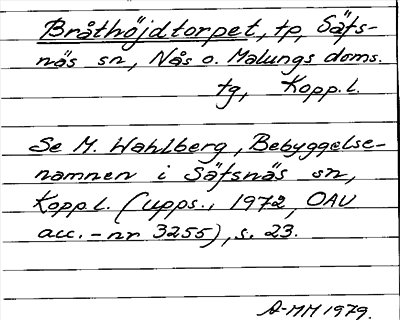 Bråthöjdtorpet, tp, Säfs-
näs sn, Nås o. Malungs doms.
tg, Kopp.l.
Se M. Wahlberg, Bebyggelse-
namnen i Säfsnäs sn,
Kopp.l. (Upps., 1972, OAU
acc.-nr 3255), s. 23.
A-MM 1979.